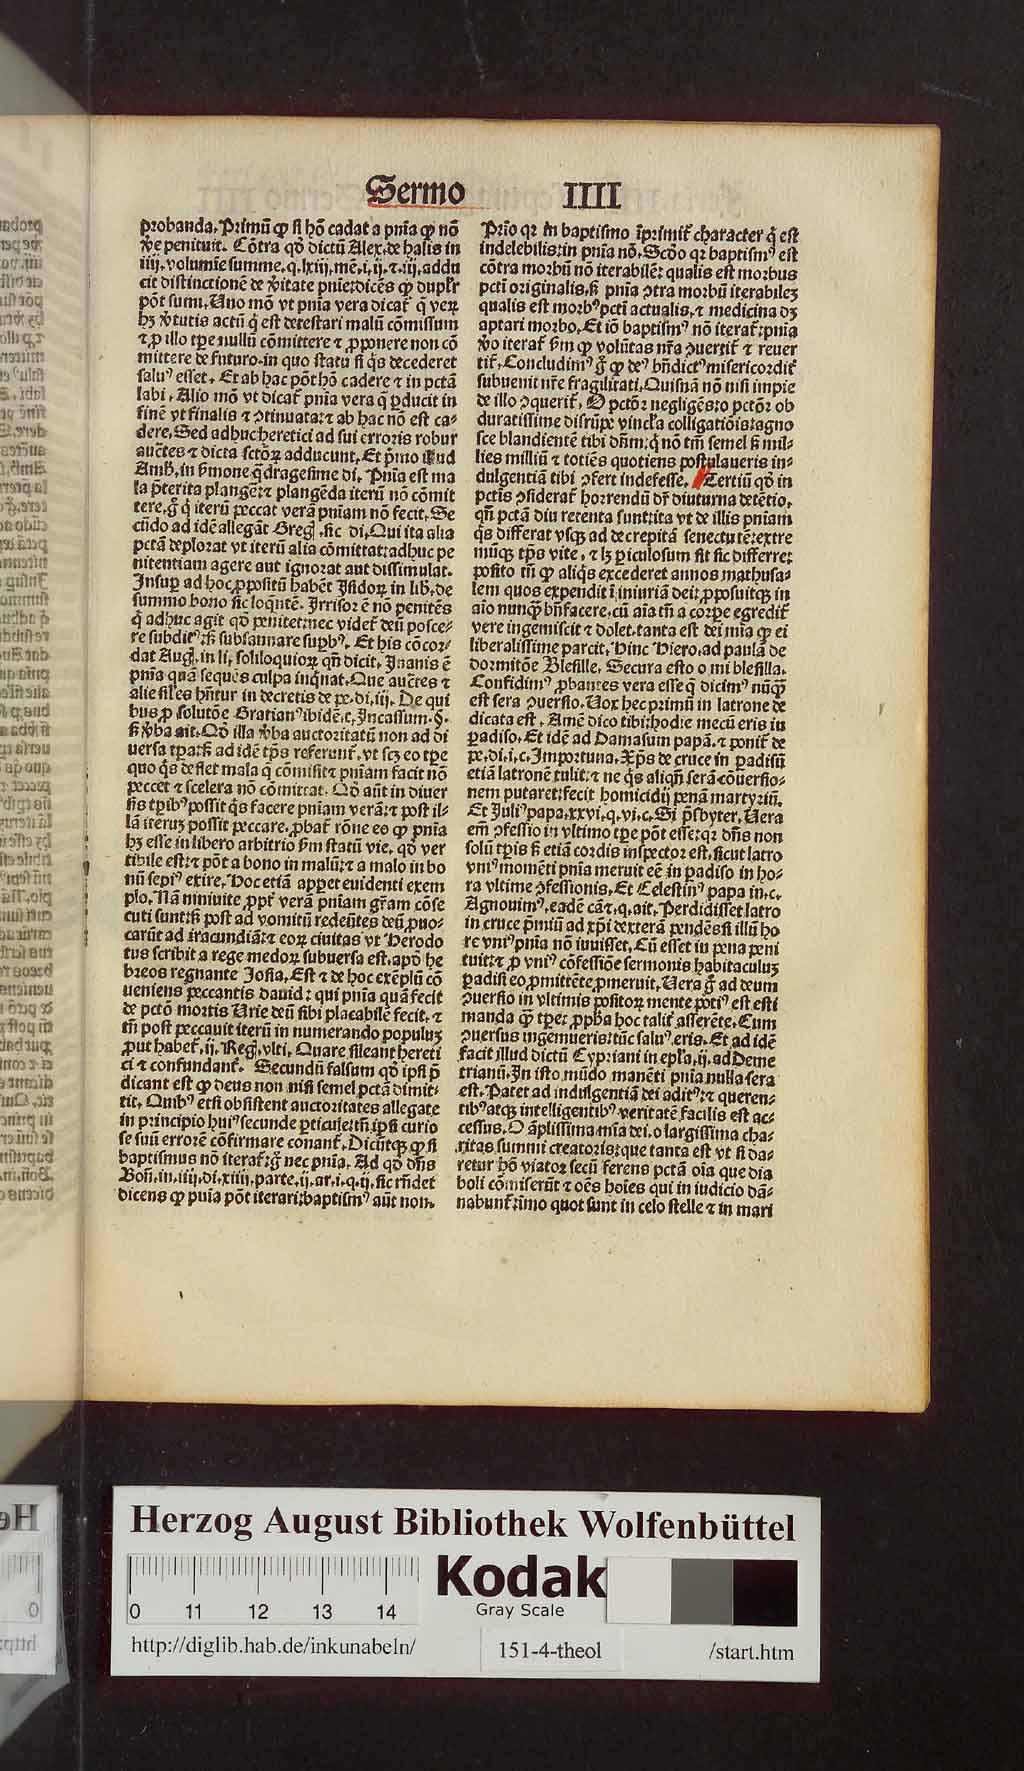 Sermo IIII
probanda. Primū ꝙ si hō cadat a pnīa ꝙ nō
ꝟe penituit. Cōtra qd̄ dictū Alex. de halis in
iiij. volumīe summe. q. lxiij. mē. i. ij. ⁊ iij. addu
cit distinctionē de ꝟitate pnīe: dicēs ꝙ duplr̄
pōt sumi. Uno mō vt pnīa vera dicat̄ q̄ veꝝ
hꝫ ꝟtutis actū q̄ est detestari malū cōmissum
⁊ ꝓ illo tꝑe nullū cōmittere ⁊ ꝓponere non cō
mittere de futuro. in quo statu si q̄s decederet
saluꝰ esset. Et ab hac pōt hō cadere ⁊ in pctā
labi. Alio mō vt dicat̄ pnīa vera q̄ ꝑducit in
finē vt finalis ⁊ ꝯtinuata: ⁊ ab hac nō est ca-
dere. Sed adhuc heretici ad sui erroris robur
auc̄tes ⁊ dicta sctōꝝ adducunt. Et p̄mo illud
Amb. in ẜmone q̄dragesime di. Pnīa est ma
la p̄terita plangeꝛ ⁊ plangēda iterū nō cōmit
tere. g̊ q̄ iterū peccat verā pnīam nō fecit. Se
cūdo ad idē allegāt Greg. sic di. Qui ita alia
pctā deplorat vt iterū alia cōmittat: adhuc pe
nitentiam agere aut ignorat aut dissimulat.
Insuꝑ ad hoc ꝓpositū habēt Isidoꝝ in lib. de
summo bono sic loquētē. Irrisor ē nō penitēs
q̄ adhuc agit qd̄ penitet: nec videt̄ deū posce-
re subditꝰ: sꝫ subsannare suꝑbꝰ. Et his cōcor-
dat Aug. in li. soliloquioꝝ qn̄ dicit. Inanis ē
pnīa quā sequēs culpa inq̄nat. Que auc̄tes ⁊
alie sil̄es hn̄tur in decretis de pe. di. iij. De qui
bus ꝓ solutōe Gratianꝰ ibidē. c. Incassum. §.
sꝫ ꝟba ait. Qd̄ illa ꝟba auctoritatū non ad di
uersa tꝑa: sꝫ ad idē tp̄s referunt̄. vt scꝫ eo tꝑe
quo q̄s deflet mala q̄ cōmisit ⁊ pnīam facit nō
peccet ⁊ scelera nō cōmittat. Qd̄ aūt in diuer
sis tꝑibꝰ possit q̄s facere pnīam verā: ⁊ post il-
lā iteruꝫ possit peccare. ꝓbat̄ rōne eo ꝙ pnīa
hꝫ esse in libero arbitrio ẜm statū vie. qd̄ ver
tibile est: ⁊ pōt a bono in malū: ⁊ a malo in bo
nū sepiꝰ exire. Hoc etiā apparet euidenti exem
plo. Nā niniuite ꝓpt̄ verā pnīam gr̄am cōse
cuti sunt: sꝫ post ad vomitū redeūtes deū ꝓuo-
carūt ad iracundiā: ⁊ eoꝝ ciuitas vt Herodo
tus scribit a rege medoꝝ subuersa est. apd̄ he
breos regnante Josia. Est ⁊ de hoc exēplū cō
ueniens peccantis dauid: qui pnīa quā fecit
de pctō mortis Urie deū sibi placabilē fecit. ⁊
tn̄ post peccauit iterū in numerando populuꝫ
ꝓut habet̄. ij. Reg. vlti. Quare sileant hereti
ci ⁊ confundant̄. Secundū falsum qd̄ ipsi p̄
dicant est ꝙ deus non nisi semel pctā dimit-
tit. Quibꝰ etsi obsistent auctoritates allegate
in principio huiꝰ secunde ꝑticule: tn̄ ipsi curio
se suū errorē cōfirmare conant̄. Dicūtqꝫ ꝙ si
baptismus nō iterat̄: g̊ nec pnīa. Ad qd̄ dn̄s
Bon̄. in. iiij. di. xiiij. parte. ij. ar. i. q. ij. sic rn̄det
dicens ꝙ pnīa pōt iterari: baptismꝰ aūt non.
Prīo qꝛ in baptismo īprimit̄ character q̄ est
indelebilis: in pnīa nō. Scd̄o qꝛ baptismꝰ est
cōtra morbū nō iterabilē: qualis est morbus
pcti originalis. sꝫ pnīa ꝯtra morbū iterabileꝫ
qualis est morbꝰ pcti actualis. ⁊ medicina dꝫ
aptari morbo. Et iō baptismꝰ nō iterat̄: pnīa
ꝟo iterat̄ ẜm ꝙ volūtas nr̄a ꝯuertit̄ ⁊ reuer
tit̄. Concludimꝰ g̊ ꝙ deꝰ bn̄dictꝰ misericordit̄
subuenit nr̄e fragilitati. Quisnā nō nisi impie
de illo ꝯquerit̄. O pctōr negligēs: o pctōr ob
duratissime disrūpe vincl̄a colligatiōis: agno
sce blandientē tibi dn̄m: q̄ nō tm̄ semel sꝫ mil-
lies milliū ⁊ totiēs quotiens postulaueris in-
dulgentiā tibi ꝯfert indefesse. Tertiū qd̄ in
pctis ꝯsiderat̄ horrendū dr̄ diuturna detētio.
qn̄ pctā diu retenta sunt: ita vt de illis pnīam
q̄s differat vsqꝫ ad decrepitā senectutē: extre
mūqꝫ tp̄s vite. ⁊ lꝫ ꝑiculosum sit sic differre:
posito tn̄ ꝙ aliq̄s excederet annos mathusa-
lem quos expendit ī iniuriā dei: ꝓposuitqꝫ in
aīo nunq̄ bn̄facere. cū aīa tn̄ a corꝑe egredit̄
vere ingemiscit ⁊ dolet. tanta est dei mīa ꝙ ei
liberalissime parcit. Hinc Hiero. ad paulā de
dormitōe Blesille. Secura esto o mi blesilla.
Confidimꝰ ꝓbantes vera esse q̄ dicimꝰ nūq̄
est sera ꝯuersio. Uox hec primū in latrone de
dicata est. Amē dico tibi: hodie mecū eris in
ꝑadiso. Et idē ad Damasum papā. ⁊ ponit̄ de
pe. di. i. c. Importuna. Xp̄s de cruce in ꝑadisū
etiā latronē tulit: ⁊ ne q̄s aliqn̄ serā cōuersio-
nem putaret: fecit homicidij penā martyriū.
Et Juliꝰ papa. xxvi. q. vi. c. Si p̄sbyter. Uera
em̄ ꝯfessio in vltimo tꝑe pōt esse: qꝛ dn̄s non
solū tꝑis sꝫ etiā cordis inspector est. sicut latro
vniꝰ momēti pnīa meruit eē in ꝑadiso in ho-
ra vltime ꝯfessionis. Et Celestinꝰ papa in. c.
Agnouimꝰ. eadē cā ⁊. q. ait. Perdidisset latro
in cruce p̄miū ad xp̄i dexterā pendēs si illū ho
re vniꝰ pnīa nō iuuisset. Cū esset in pena peni
tuit: ⁊ ꝓ vniꝰ cōfessiōe sermonis habitaculuꝫ
ꝑadisi eo ꝓmittēte ꝓmeruit. Uera g̊ ad deum
ꝯuersio in vltimis positoꝝ mente potiꝰ est esti
manda q̄ꝫ tꝑe: ꝓpħa hoc talit̄ asserēte. Cum
ꝯuersus ingemueris: tūc saluꝰ eris. Et ad idē
facit illud dictū Cypriani in epl̄a. ij. ad Deme
trianū. In isto mūdo manēti pnīa nulla sera
est. Patet ad indulgentiā dei aditꝰ: ⁊ queren-
tibꝰ atqꝫ intelligentibꝰ veritatē facilis est ac-
cessus. O āplissima mīa dei. o largissima cha-
ritas summi creatoris: que tanta est vt si da-
retur hō viator secū ferens pctā oīa que dia
boli cōmiserūt ⁊ oēs hoīes qui in iudicio dā-
nabunt̄: imo quot sunt in celo stelle ⁊ in mari
Herzog August Bibliothek Wolfenbüttel
Kodak
Gray Scale
0 11 12 13 14
http://diglib.hab.de/inkunabeln/ 151-4-theol /start.htm